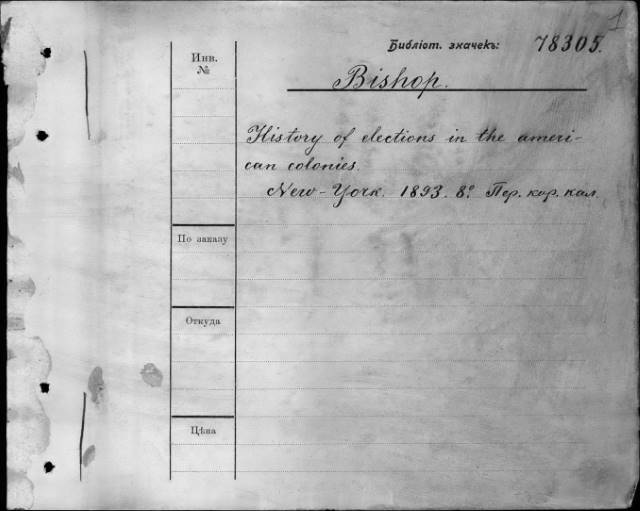 1
Библіот. значекъ: 78305.
Инв.
№
Bishop.
History of elections in the ameri-
can colonies.
New-York. 1893. 8º Пер. кор. кал.
По заказу
Откуда
Цѣна